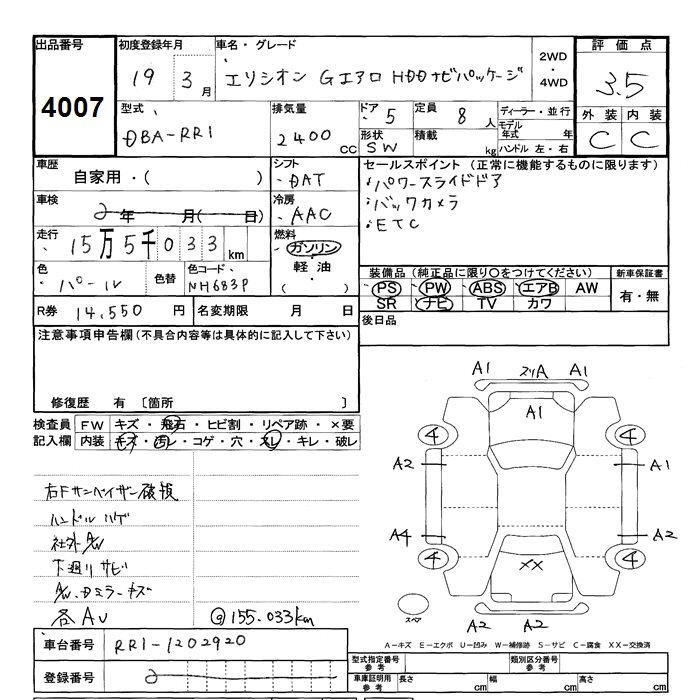 出品番号
4007
初度登録年月
19 3月
車名・グレード
エリシオン Gエアロ HDDナビパッケージ
2WD
・
4WD
評価点
3.5
外装 内装
C C
型式
DBA-RR1
排気量
2400 CC
ドア
5
形状
SW
定員
8人
積載
kg
ディーラー・並行
モデル年式 年
ハンドル 左・右
車歴
自家用・( )
車検
2年 月( 日)
走行
15万5千033km
色
パール
色替
色コード
NH683P
シフト
DAT
冷房
AAC
燃料
ガソリン
軽油
( )
セールスポイント (正常に機能するものに限ります)
パワースライドドア
バックカメラ
ETC
装備品 (純正品に限り○をつけてください)
PS PW ABS エアB AW
SR ナビ TV カワ
新車保証書
有・無
R券 14,550 円
名変期限 月 日
後日品
注意事項申告欄(不具合内容等は具体的に記入して下さい)
修復歴 有 〔箇所 〕
検査員記入欄
FW キズ・飛石・ヒビ割・リペア跡・×要
内装 キズ・汚レ・コゲ・穴・スレ・キレ・破レ
右Fサンバイザー破損
ハンドルハゲ
社外A/V
下廻りサビ
各AU
@155.033km
A1 スリA A1
A1
4 4
A2 A1
A4 A2
4 4
XX
スペア
A2 A2
A-キズ E-エクボ U-凹み W-補修跡 S-サビ C-腐食 XX-交換済
車台番号
RR1-1202920
登録番号
2
型式指定番号
参考
類別区分番号
参考
車庫証明用
参考
長さ cm
幅 cm
高さ cm